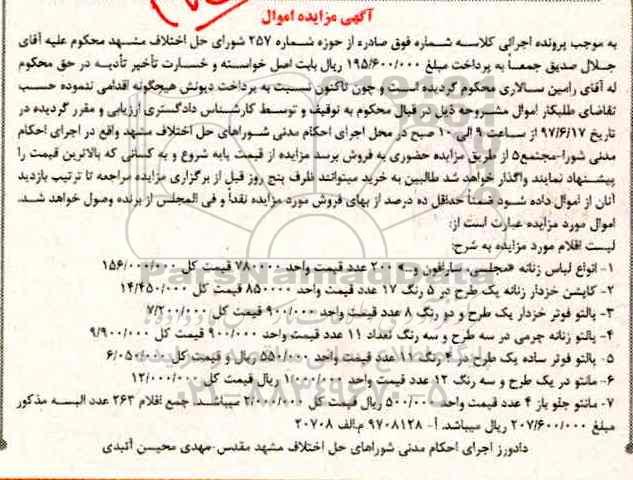 آگهی مزایده اموال
به موجب پرونده اجرائی کلاسه شماره فوق صادره از حوزه شماره ۲۵۷ شورای حل اختلاف مشهد محکوم علیه آقای
جلال صدیق جمعاً به پرداخت مبلغ ۱۹۵/۶۰۰/۰۰۰ ریال بابت اصل خواسته و خسارت تأخیر تأدیه در حق محکوم
له آقای رامین سالاری محکوم گردیده است و چون تاکنون نسبت به پرداخت دیونش هیچگونه اقدامی ننموده حسب
تقاضای طلبکار اموال مشروحه ذیل در قبال محکوم به توقیف و توسط کارشناس دادگستری ارزیابی و مقرر گردیده در
تاریخ ۹۷/۶/۱۷ از ساعت ۹ الی ۱۰ صبح در محل اجرای احکام مدنی شوراهای حل اختلاف مشهد واقع در اجرای احکام
مدنی شورا-مجتمع۵ از طریق مزایده حضوری به فروش برسد مزایده از قیمت پایه شروع و به کسانی که بالاترین قیمت را
پیشنهاد نمایند واگذار خواهد شد طالبین به خرید میتوانند ظرف پنج روز قبل از برگزاری مزایده مراجعه تا ترتیب بازدید
آنان از اموال داده شود ضمناً حداقل ده درصد از بهای فروش مورد مزایده نقداً و فی المجلس از برنده وصول خواهد شد.
اموال مورد مزایده عبارت است از:
لیست اقلام مورد مزایده به شرح:
۱- انواع لباس زنانه «مجلسی، سارافون و... ۲۰۰ عدد قیمت واحد ۷۸۰۰۰۰ قیمت کل ۱۵۶/۰۰۰/۰۰۰
۲- کاپشن خزدار زنانه یک طرح در ۵ رنگ ۱۷ عدد قیمت واحد ۸۵۰۰۰۰ قیمت کل ۱۴/۴۵۰/۰۰۰
۳- پالتو فوتر خزدار یک طرح و دو رنگ ۸ عدد قیمت واحد ۹۰۰/۰۰۰ قیمت کل ۷/۲۰۰/۰۰۰
۴- پالتو زنانه چرمی در سه طرح و سه رنگ تعداد ۱۱ عدد قیمت واحد ۹۰۰/۰۰۰ قیمت کل ۹/۹۰۰/۰۰۰
۵- پالتو فوتر ساده یک طرح در ۴ رنگ ۱۱ عدد قیمت واحد ۵۵۰/۰۰۰ ریال و قیمت کل ۶/۰۵۰/۰۰۰
۶- مانتو در یک طرح و سه رنگ ۱۲ عدد قیمت واحد ۱/۰۰۰/۰۰۰ ریال قیمت کل ۱۲/۰۰۰/۰۰۰
۷- مانتو جلو باز ۴ عدد قیمت واحد ۵۰۰/۰۰۰ ریال قیمت کل ۲/۰۰۰/۰۰۰ میباشد. جمع اقلام ۲۶۳ عدد البسه مذکور
مبلغ ۲۰۷/۶۰۰/۰۰۰ ریال میباشد. آ- ۹۷۰۸۱۲۸ م.الف ۲۰۷۰۸
دادورز اجرای احکام مدنی شوراهای حل اختلاف مشهد مقدس-مهدی محیسن آئیدی
ParsNamadData
۰۲۱-۸۸۳۴۹۶۷۰-۵